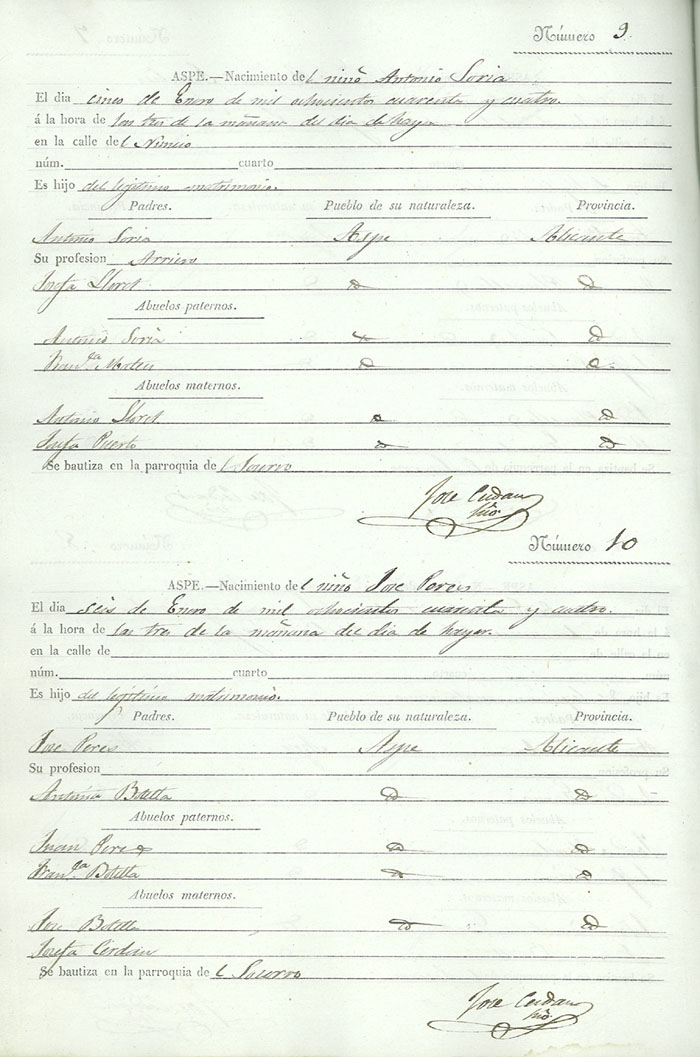 Número 9.
ASPE.—Nacimiento del niño Antonio Soria
El dia cinco de Enero de mil ochocientos cuarenta y cuatro.
á la hora de las tres de la mañana del dia de hayer
en la calle del Nuncio
núm. cuarto
Es hijo del legitimo matrimonio.
Padres. Pueblo de su naturaleza. Provincia.
Antonio Soria Aspe Alicante
Su profesion Arriero
Josefa Lloret
Abuelos paternos.
Antonio Soria
Fran.ca Mateu
Abuelos maternos.
Antonio Lloret
Josefa Puerto
Se bautiza en la parroquia del Socorro
Jose Cerdan
Número 10
ASPE.—Nacimiento del niño Jose Peres
El dia seis de Enero de mil ochocientos cuarenta y cuatro.
á la hora de las tres de la mañana del dia de hayer.
en la calle de
núm. cuarto
Es hijo del legitimo matrimonio.
Padres. Pueblo de su naturaleza. Provincia.
Jose Peres Aspe Alicante
Su profesion
Antonia Botella
Abuelos paternos.
Juan Peres
Fran.ca Botella
Abuelos maternos.
Jose Botella
Josefa Cerdan
Se bautiza en la parroquia del Socorro
Jose Cerdan